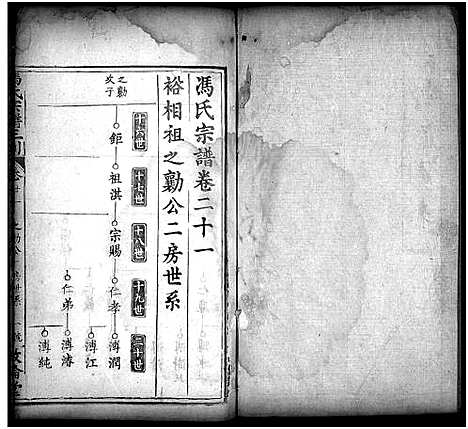 馮氏宗譜卷二十一
裕相祖之勳公二房世系
十六世
十七世
十八世
十九世
二十世
之勳次子
鉅
祖淇
宗賜
仁孝
溥潤
溥江
仁弟
溥濬
溥純
馮氏宗譜